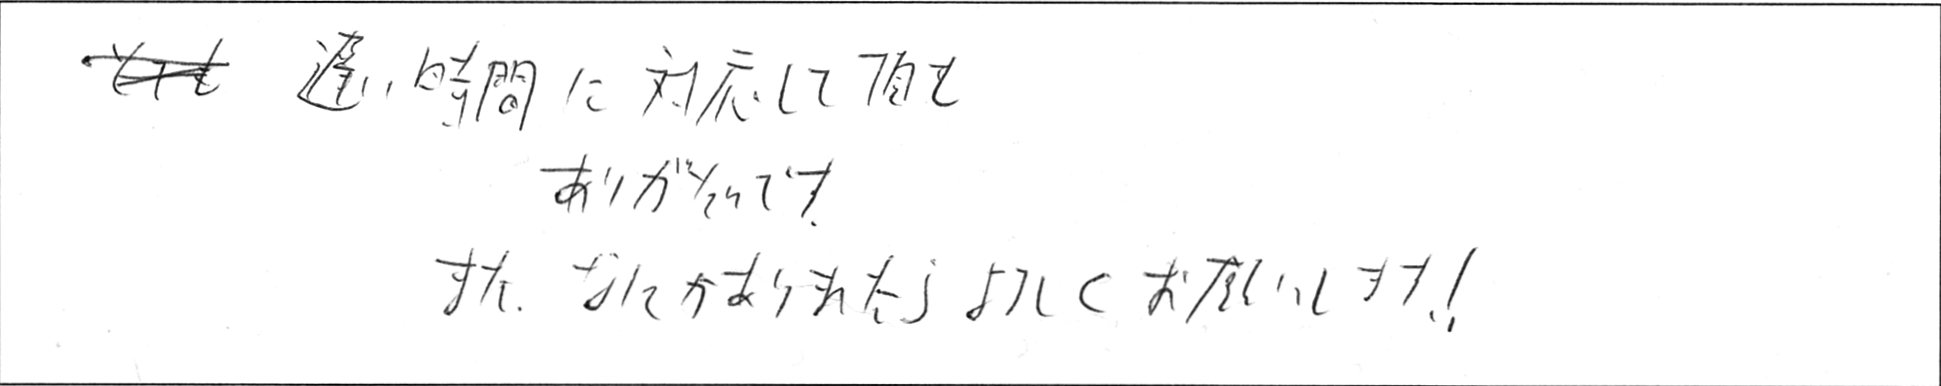 遅い時間に対応して頂き
ありがたいです。
また、なにかありましたらよろしくお願いします!